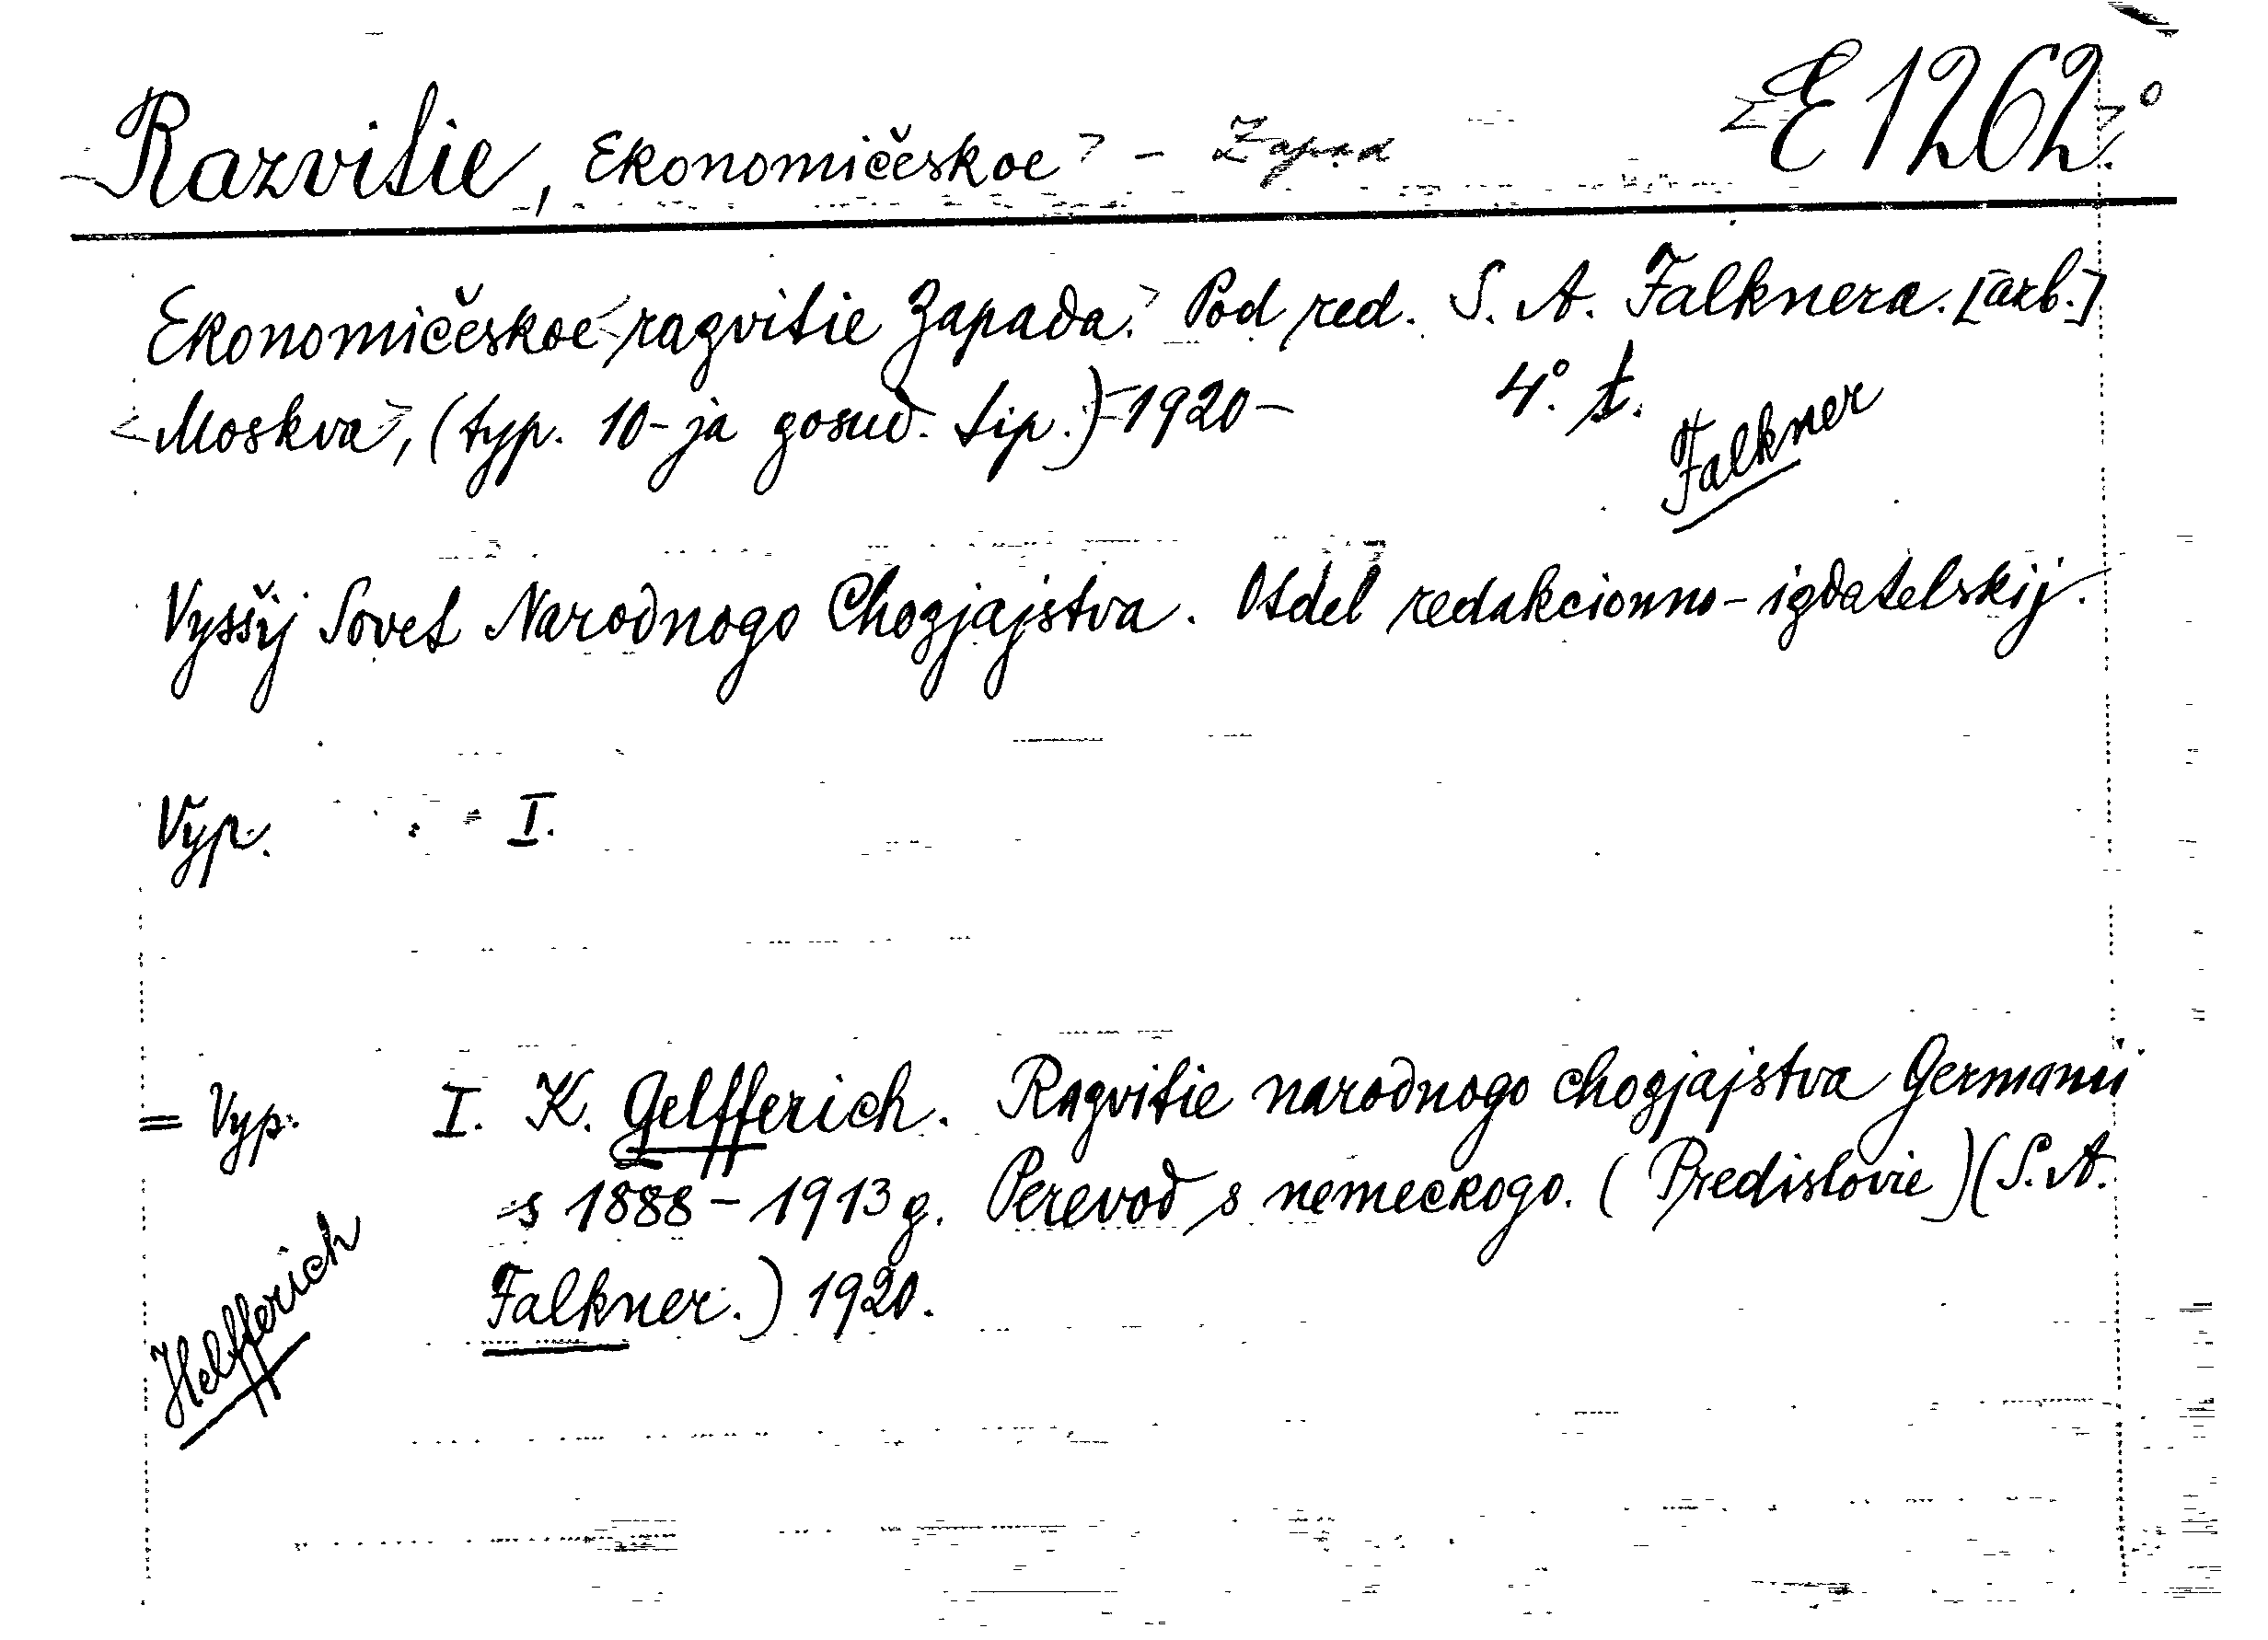 Razvitie, Ekonomičeskoe - Zapad E 1262.°
Ekonomičeskoe razvitie Zapada. Pod red. S. A. Falknera. [azb.]
Moskva, (typ. 10-ja gosud. tip.) 1920- 4°. t.
Falkner
Vysšij Sovet Narodnogo Chozjajstva. Otdel redakcionno-izdatelskij.
Vyp. I.
= Vyp. I. K. Gelfferich. Razvitie narodnogo chozjajstva Germanii
s 1888-1913 g. Perevod s nemeckogo. (Predislovie) (S. A.
Falkner.) 1920.
Helfferich